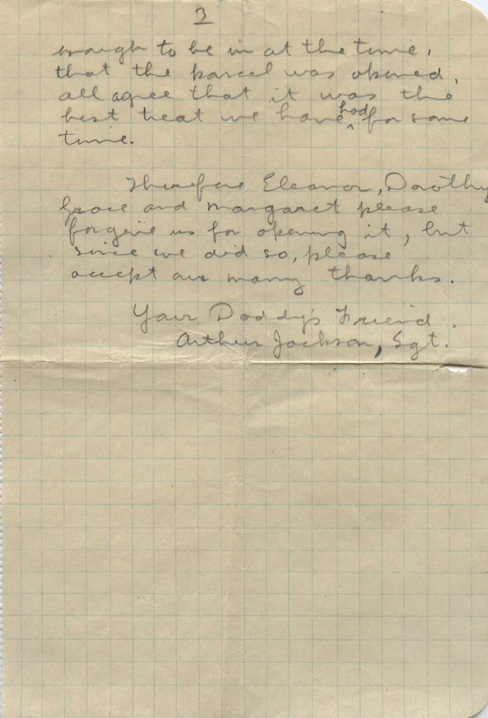 2
enough to be in at the time,
that the parcel was opened,
all agree that it was the
best treat we have had for some
time.
Therefore Eleanor, Dorothy
Grace and Margaret please
forgive us for opening it, but
since we did so, please
accept our many thanks.
Your Daddy's Friend.
Arthur Jackson, Sgt.